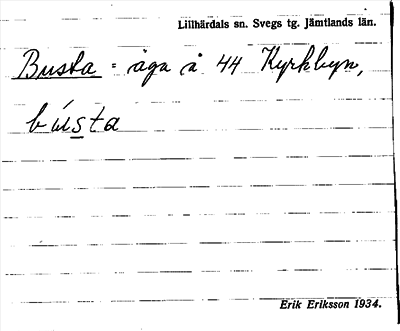 Lillhärdals sn. Svegs tg. Jämtlands län.
Busta = äga å 44 Kyrkbyn,
bússta
Erik Eriksson 1934.